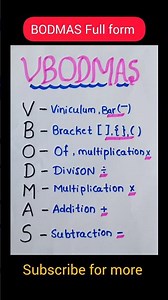 BODMAS Full form
VBODMAS
V - Viniculum, Bar(—)
B - Bracket [ ],{ },( )
O - Of, multiplication x
D - Divison ÷
M - Multiplication x
A - Addition +
S - Subtraction -
Subscribe for more